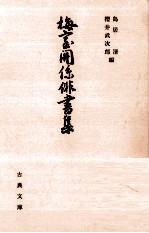 鳥居清
櫻井武次郎 編
梅室関係俳書集
古典文庫